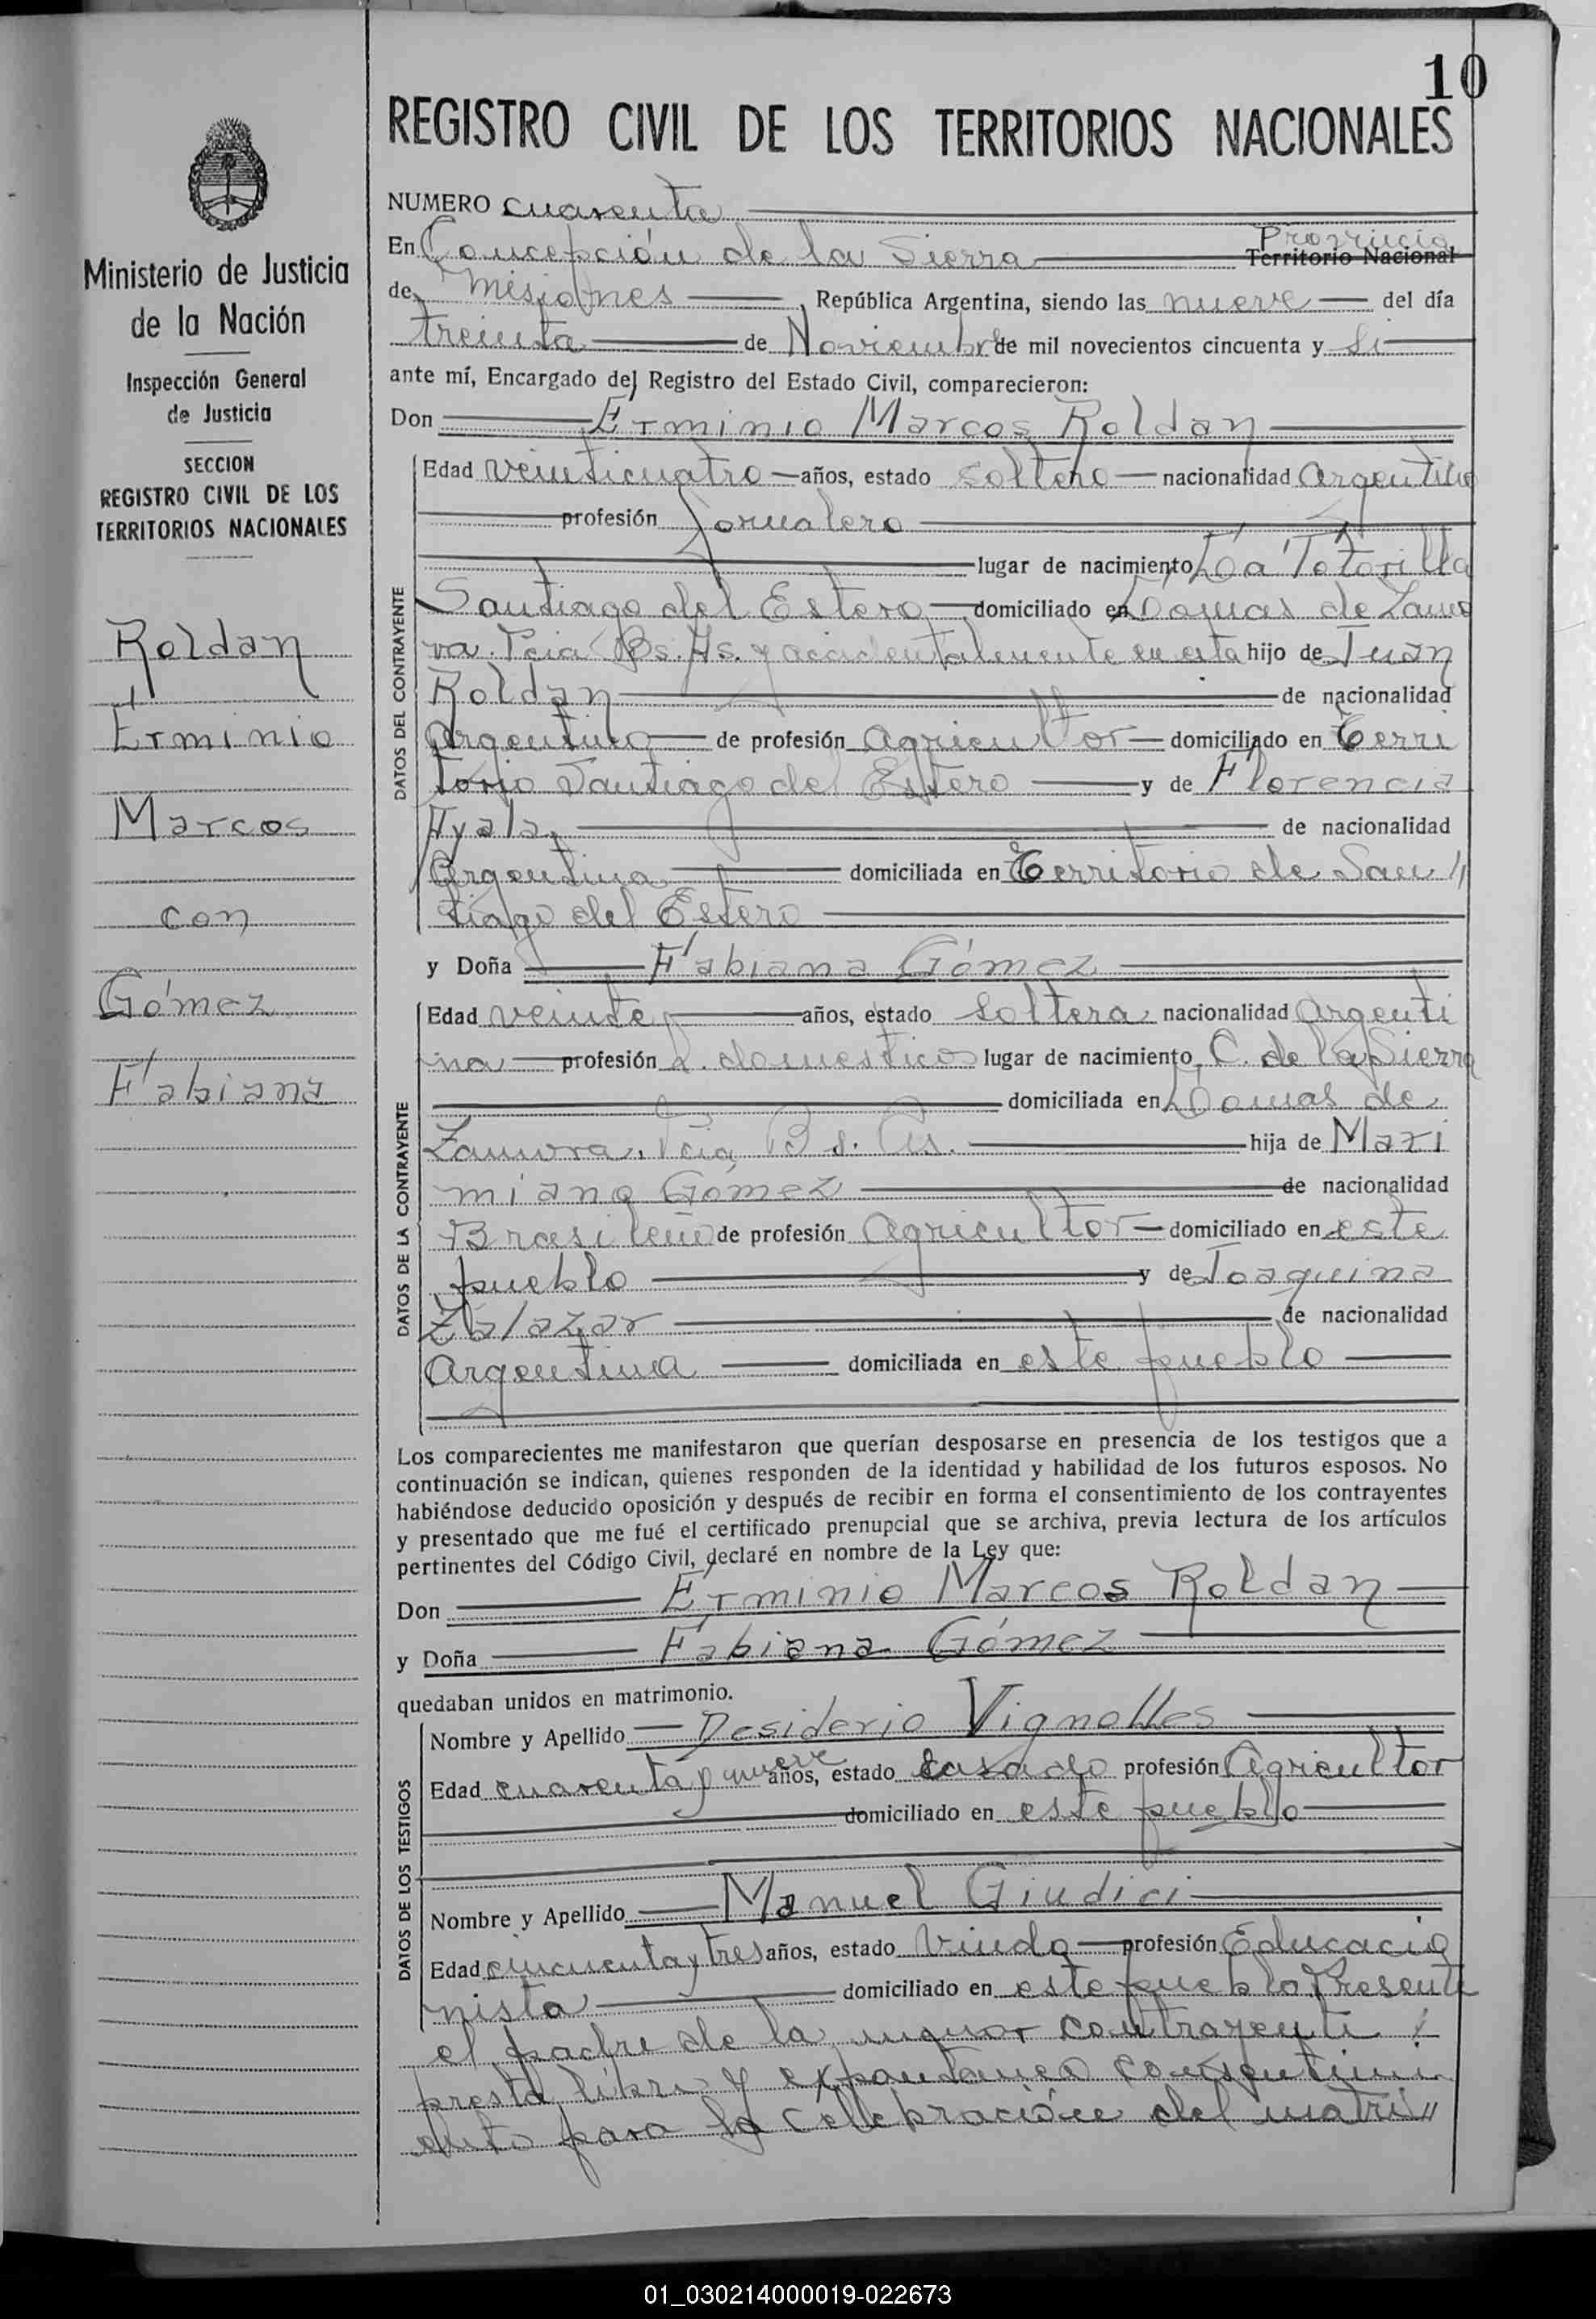 10
REGISTRO CIVIL DE LOS TERRITORIOS NACIONALES
Ministerio de Justicia
de la Nación
Inspección General
de Justicia
SECCION
REGISTRO CIVIL DE LOS
TERRITORIOS NACIONALES
Roldan
Erminio
Marcos
con
Gómez
Fabiana
NUMERO cuarenta
Provincia
En Concepción de la Sierra Territorio Nacional
de Misiones, República Argentina, siendo las nueve del día
treinta de Noviembre de mil novecientos cincuenta y
ante mí, Encargado del Registro del Estado Civil, comparecieron:
Don Erminio Marcos Roldan
DATOS DEL CONTRAYENTE
Edad veinticuatro años, estado soltero nacionalidad Argentino
profesión Jornalero
lugar de nacimiento La Totorilla
Santiago del Estero domiciliado en Lomas de Zamo
ra. Pcia Bs. As. y accidentalmente en esta hijo de Juan
Roldan de nacionalidad
Argentino de profesión Agricultor domiciliado en Terri
torio Santiago del Estero y de Florencia
Ayala de nacionalidad
Argentina domiciliada en Territorio de San //
tiago del Estero
y Doña Fabiana Gómez
DATOS DE LA CONTRAYENTE
Edad veinte años, estado soltera nacionalidad Argenti
na profesión Q. domesticos lugar de nacimiento C. de la Sierra
domiciliada en Lomas de
Zamora. Pcia Bs. As. hija de Maxi
miano Gómez de nacionalidad
Brasileño de profesión Agricultor domiciliado en este
pueblo y de Joaquina
Zalazar de nacionalidad
Argentina domiciliada en este pueblo
Los comparecientes me manifestaron que querían desposarse en presencia de los testigos que a
continuación se indican, quienes responden de la identidad y habilidad de los futuros esposos. No
habiéndose deducido oposición y después de recibir en forma el consentimiento de los contrayentes
y presentado que me fué el certificado prenupcial que se archiva, previa lectura de los artículos
pertinentes del Código Civil, declaré en nombre de la Ley que:
Don Erminio Marcos Roldan
y Doña Fabiana Gómez
quedaban unidos en matrimonio.
DATOS DE LOS TESTIGOS
Nombre y Apellido Desiderio Vignolles
Edad cuarenta y nueve años, estado casado profesión Agricultor
domiciliado en este pueblo
Nombre y Apellido Manuel Giudici
Edad cincuenta y tres años, estado Viudo profesión Educacio
nista domiciliado en este pueblo. Presente
el padre de la menor contrayente
presta libre y expontaneo consentimi
ento para la celebración del matri//
01_030214000019-022673